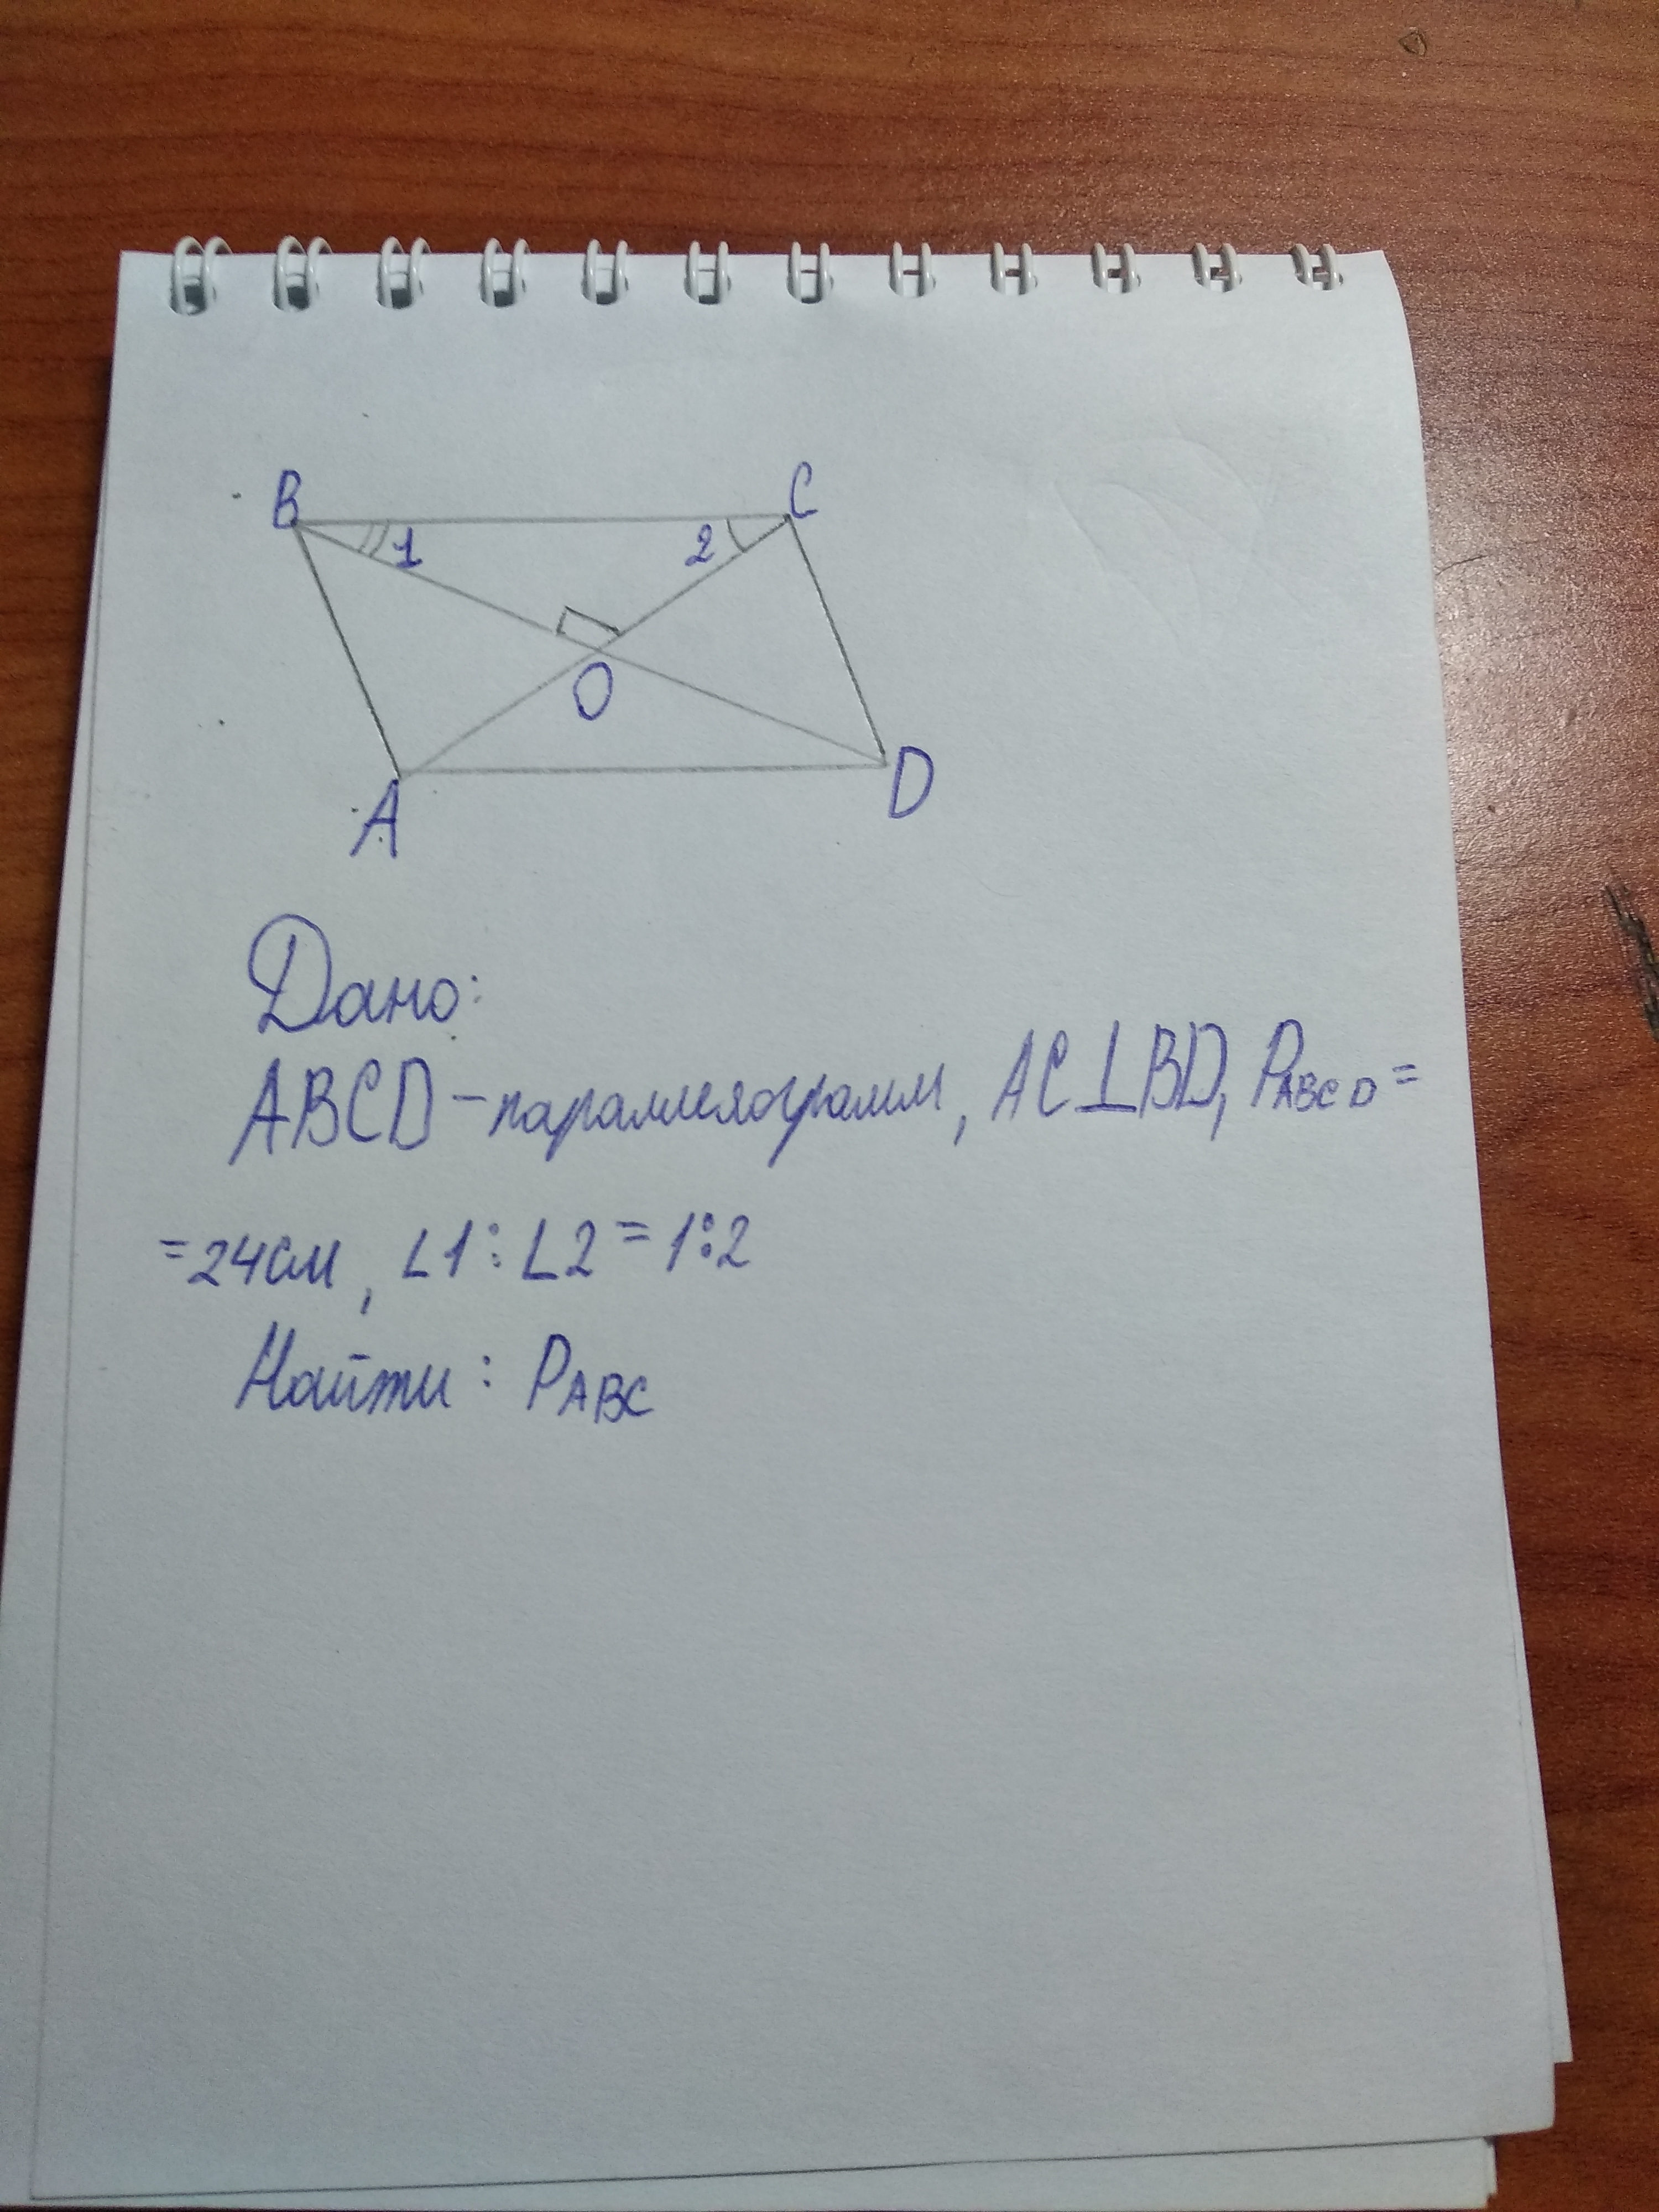 B C
1 2
O
A D
Дано:
ABCD - параллелограмм, AC⊥BD, PABCD =
= 24 см, ∠1 : ∠2 = 1:2
Найти: PABC